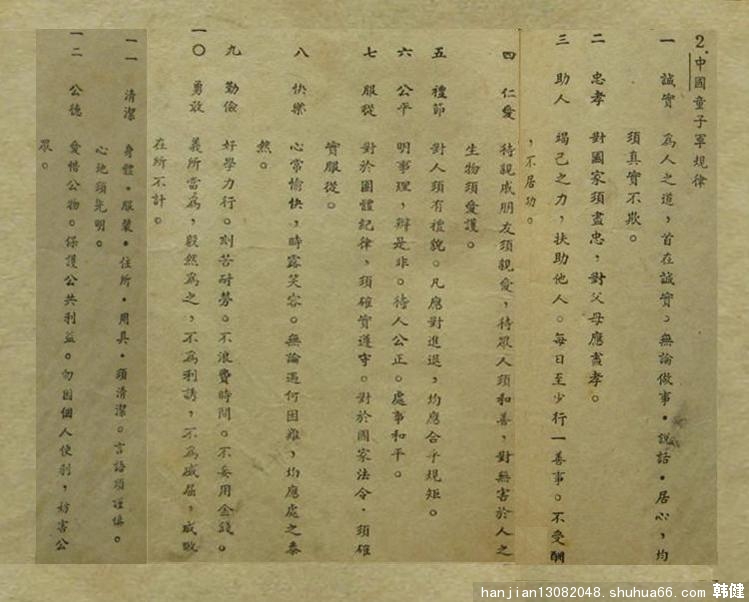 2.中國童子軍規律
一 誠實 為人之道，首在誠實。無論做事・說話・居心，均
須真實不欺。
二 忠孝 對國家須盡忠，對父母應盡孝。
三 助人 竭己之力，扶助他人。每日至少行一善事。不受酬
，不居功。
四 仁愛 待親戚朋友須親愛，待眾人須和善，對無害於人之
生物須愛護。
五 禮節 對人須有禮貌。凡應對進退，均應合乎規矩。
六 公平 明事理，辨是非。待人公正。處事和平。
七 服從 對於團體紀律，須確實遵守。對於國家法令・須確
實服從。
八 快樂 心常愉快，時露笑容。無論遇何困難，均應處之泰
然。
九 勤儉 好學力行。刻苦耐勞。不浪費時間。不妄用金錢。
一〇 勇敢 義所當為，毅然為之，不為利誘，不為威屈，成敗
在所不計。
一一 清潔 身體・服裝・住所・用具・須清潔。言語須謹慎。
心地須光明。
一二 公德 愛惜公物。保護公共利益。勿因個人便利，妨害公
眾。
hanjian13082048.shuhua66.com 韩健